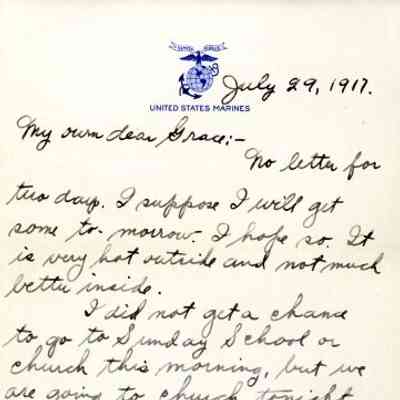 UNITED STATES MARINES
July 29, 1917.
My own dear Grace:-
No letter for
two days. I suppose I will get
some to-morrow. I hope so. It
is very hot outside and not much
better inside.
I did not get a chance
to go to Sunday School or
church this morning, but we
are going to church tonight